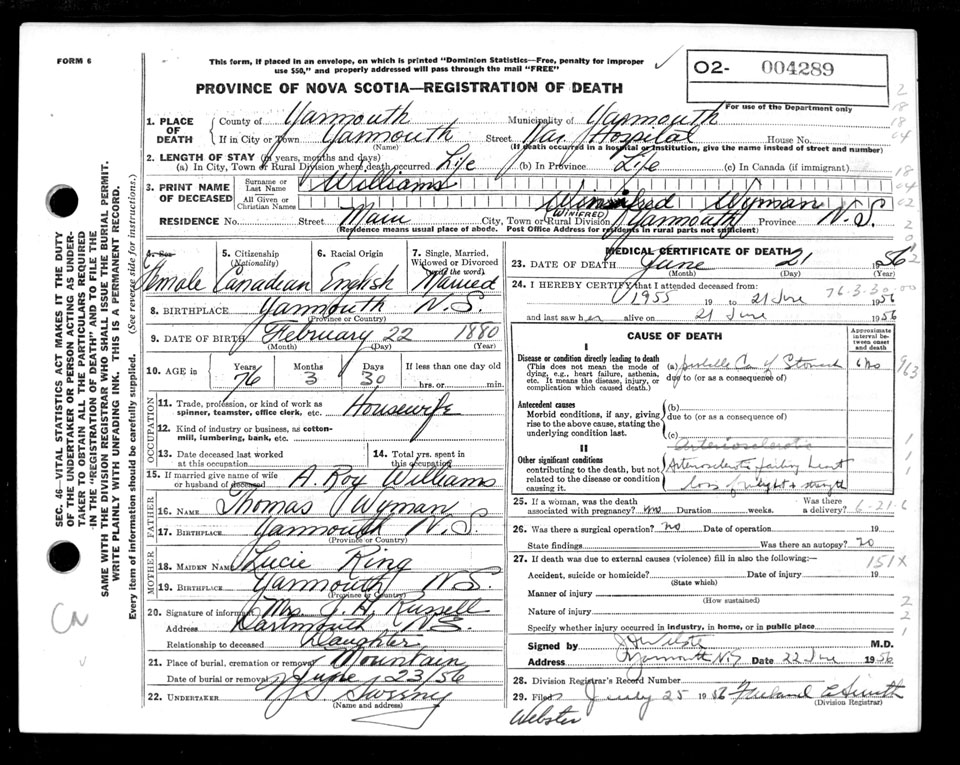 FORM 6
This form, if placed in an envelope, on which is printed "Dominion Statistics—Free, penalty for improper
use $50," and properly addressed will pass through the mail "FREE"
O2- 004289
PROVINCE OF NOVA SCOTIA—REGISTRATION OF DEATH
For use of the Department only
1. PLACE OF DEATH
County of Yarmouth Municipality of Yarmouth
If in City or Town Yarmouth Street Yar. Hospital House No.
(Name) (If death occurred in a hospital or institution, give the name instead of street and number)
2. LENGTH OF STAY (in years, months and days)
(a) In City, Town or Rural Division where death occurred. Life (b) In Province Life (c) In Canada (if immigrant)
3. PRINT NAME OF DECEASED
Surname or Last Name Williams
All Given or Christian Names Winifred Wyman
(WINIFRED)
RESIDENCE No. Street Main City, Town or Rural Division Yarmouth Province N.S.
(Residence means usual place of abode. Post Office Address for residents in rural parts not sufficient)
4. Sex Female
5. Citizenship (Nationality) Canadian
6. Racial Origin English
7. Single, Married, Widowed or Divorced (write the word). Married
8. BIRTHPLACE Yarmouth N.S.
(Province or Country)
9. DATE OF BIRTH February 22 1880
(Month) (Day) (Year)
10. AGE in Years 76 Months 3 Days 30 If less than one day old
hrs. or min.
OCCUPATION
11. Trade, profession, or kind of work as spinner, teamster, office clerk, etc. Housewife
12. Kind of industry or business, as cotton-mill, lumbering, bank, etc.
13. Date deceased last worked at this occupation
14. Total yrs. spent in this occupation
15. If married give name of wife or husband of deceased A. Roy Williams
FATHER
16. NAME Thomas Wyman
17. BIRTHPLACE Yarmouth N.S.
(Province or Country)
MOTHER
18. MAIDEN NAME Lucie Ring
19. BIRTHPLACE Yarmouth N.S.
(Province or Country)
20. Signature of informant Mrs. G. H. Russell
Address Dartmouth N.S.
Relationship to deceased Daughter
21. Place of burial, cremation or removal Mountain
Date of burial or removal June 23/56
22. UNDERTAKER Sweeny
(Name and address)
MEDICAL CERTIFICATE OF DEATH
23. DATE OF DEATH June 21 1956
(Month) (Day) (Year)
24. I HEREBY CERTIFY that I attended deceased from:
76-3-30-00
1955 19 to 21 June 1956
and last saw her alive on 21 June 1956
CAUSE OF DEATH
Approximate interval between onset and death
I
Disease or condition directly leading to death
(This does not mean the mode of dying, e.g., heart failure, asthenia, etc. It means the disease, injury, or complication which caused death.)
(a) Ca of Stomach 6 mos
due to (or as a consequence of)
Antecedent causes
Morbid conditions, if any, giving rise to the above cause, stating the underlying condition last.
(b)
due to (or as a consequence of)
(c) Arteriosclerotic
II
Other significant conditions
contributing to the death, but not related to the disease or condition causing it.
Arteriosclerotic failing heart
loss of weight & strength
25. If a woman, was the death associated with pregnancy? no Duration weeks. Was there a delivery?
6-21-6
26. Was there a surgical operation? no Date of operation 19
State findings Was there an autopsy? no
27. If death was due to external causes (violence) fill in also the following:—
151X
Accident, suicide or homicide? Date of injury 19
(State which)
Manner of injury
(How sustained)
Nature of injury
Specify whether injury occurred in industry, in home, or in public place
Signed by M.D.
Address Yarmouth N.S. Date 22 June 1956
28. Division Registrar's Record Number
29. Filed July 25 1956
(Division Registrar)
Webster
SEC. 46—VITAL STATISTICS ACT MAKES IT THE DUTY
OF THE UNDERTAKER OR PERSON ACTING AS UNDER-
TAKER TO OBTAIN ALL THE PARTICULARS REQUIRED
IN THE "REGISTRATION OF DEATH" AND TO FILE THE
SAME WITH THE DIVISION REGISTRAR WHO SHALL ISSUE THE BURIAL PERMIT.
WRITE PLAINLY WITH UNFADING INK. THIS IS A PERMANENT RECORD.
Every item of information should be carefully supplied. (See reverse side for instructions.)